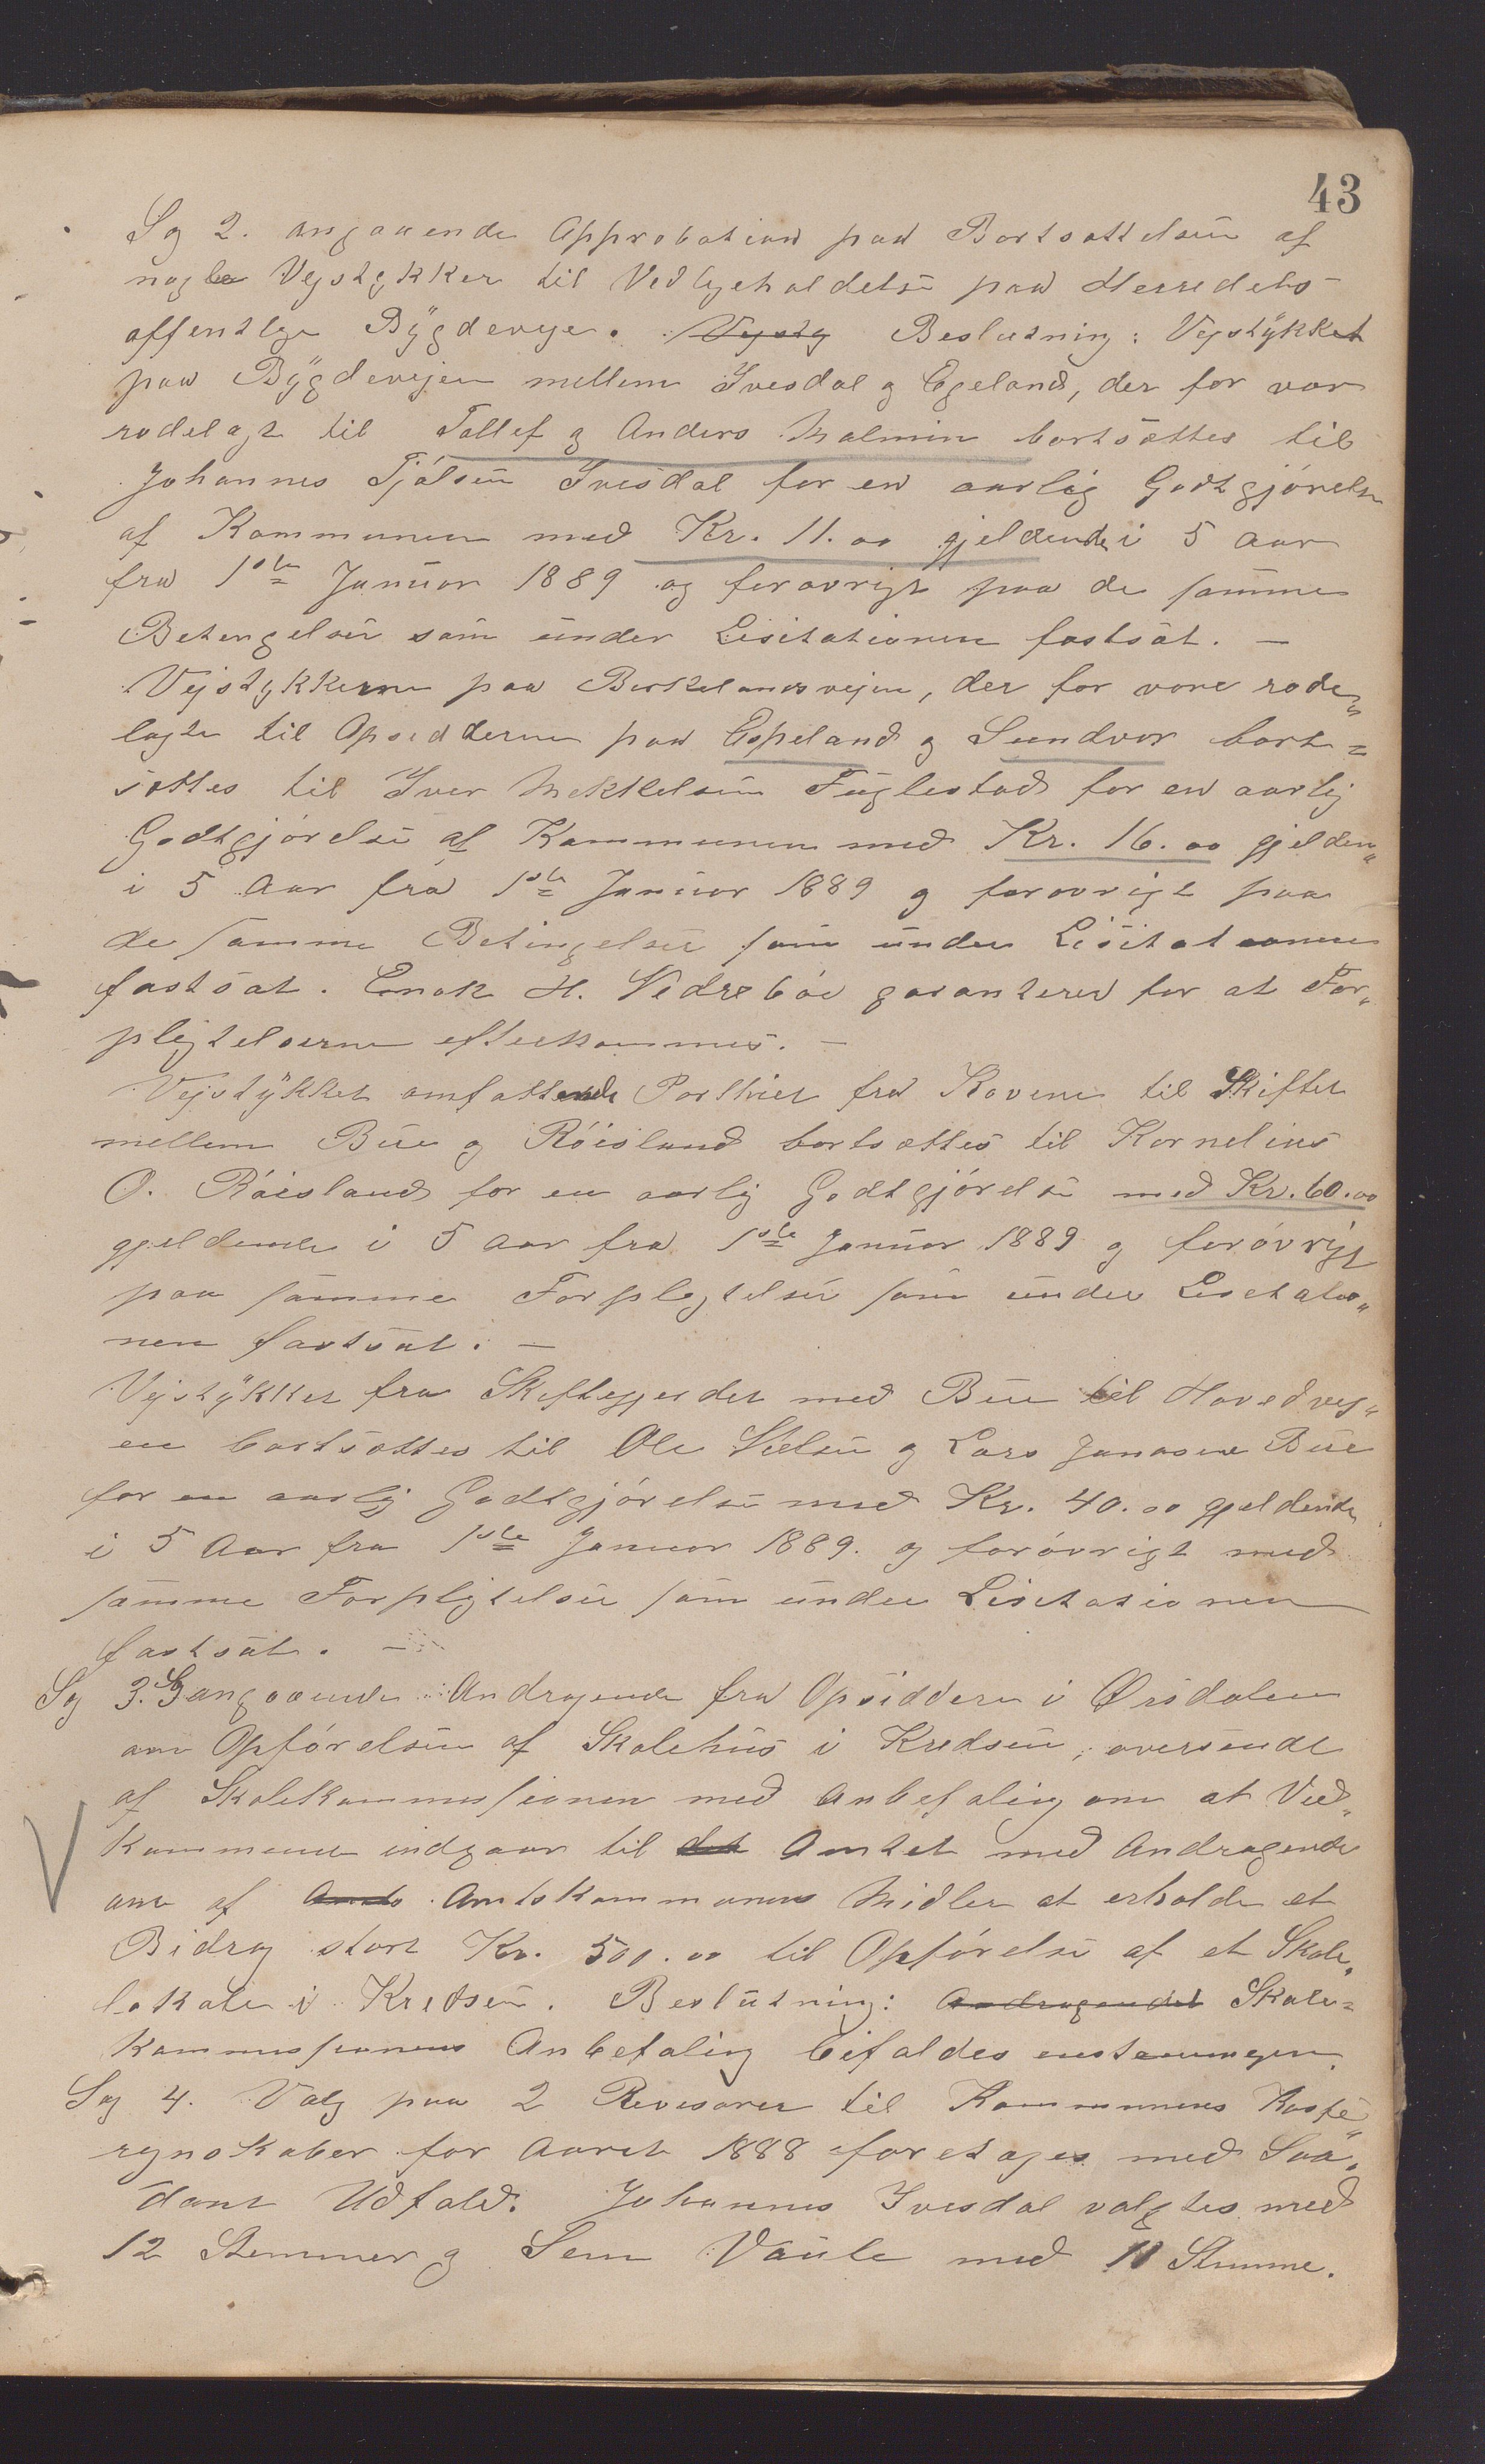 43
Sag 2. angaaende Approbation paa Bortsættelsen af
nogle Vejstykker til Vedligeholdelse paa Herredets
offentlige Bÿgdeveje. Vejsty Beslutning: Vejstÿkket
paa Bÿgdevejen mellem Ivesdal og Egeland, der før var
rodelagt til Tollef og Anders Malmin bortsættes til
Johannes Tjølsen Ivesdal for en aarlig Godtgjórelse
af Kommunen med Kr. 11.00 gjeldende i 5 Aar
fra 1ste Januar 1889 og forøvrigt paa de samme
Betengelser som under Lisitationen fastsat. —
Vejstykkerne paa Berkelandsvejen, der før vare rode„
lagte til Opsidderne paa Espeland og Sundvor bort=
sættes til Iver Mekkelsen Fuglestad for en aarlig
Godtgjórelse af Kommunen med Kr. 16.00 gjelden„
i 5 Aar fra 1ste Januar 1889 og forøvrigt paa
de samme Betingelser som under Lisitationen
fastsat. Enok H. Vedrebóe garanterer for at For„
pligtelserne efterkommes. —
Vejstÿkket omfattende Partiet fra Kovene til Skiftet
mellem Bue og Róisland bortsættes til Kornelius
O. Róisland for en aarlig Godtgjórelse med Kr. 60.00
gjeldende i 5 Aar fra 1ste Januar 1889 og forövrigt
paa samme Forplegtelser som under Lisetatio„
nen fastsat. —
Vejstÿkket fra Skiftegjerdet med Bue til Hovedvej„
en bortsættes til Ole Nelsen og Lars Janasen Bue
for en aarlig Godtgjórelse med Kr. 40.00 gjeldende
i 5 Aar fra 1ste Januar 1889. og foróvrigt med
samme Forpligtelser som under Lisitationen
fastsat. —
Sag 3. angaaende Andragende fra Opsiddere i Ørsdalen
om Opfórelsen af Skolehus i Kredsen, oversendt
af Skolekommissionen med Anbefaling om at Ved„
kommende indgaar til det Amtet med Andragende
om af Amts Amtskommunens Midler at erholde et
Bidrag stort Kr. 500.00 til Opfórelse af et Skole„
lokale i Kredsen. Beslutning: Andragendet Skole=
kommissionens Anbefaling bifaldes enstemmigen.
Sag 4. Valg paa 2 Revisorer til Kommunens Kasse„
regnskaber for Aaret 1888 foretages med Saa„
dant Udfald. Johannes Ivesdal valgtes med
12 Stemmer og Sem Vaule med 11 Stemme.